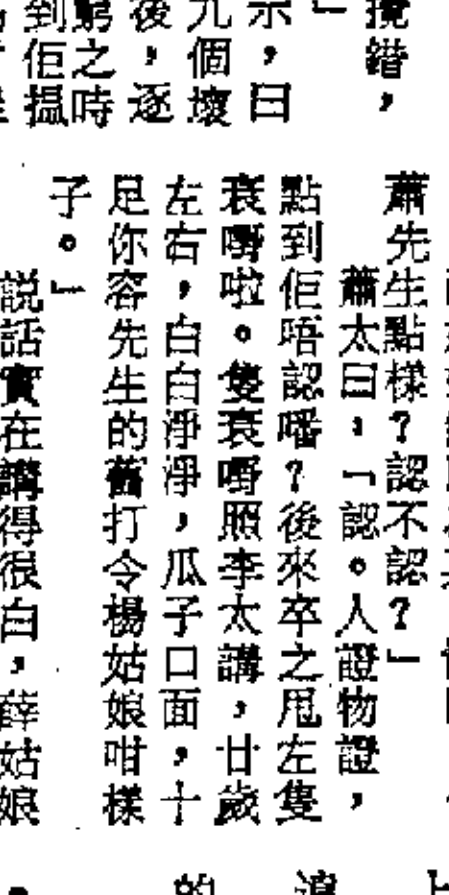 攪錯，
」
示，曰
九個壞
後，逐
窮之時
到佢搵
蕭先生點樣？認不認？」
蕭太曰，「認。人證物證，
點到佢唔認噃？後來卒之甩左隻
衰嘢啦。隻衰嘢照李太講，廿歲
左右，白白淨淨，瓜子口面，十
足你容先生的舊打令楊姑娘咁樣
子。」
説話實在講得很白，薛姑娘
的